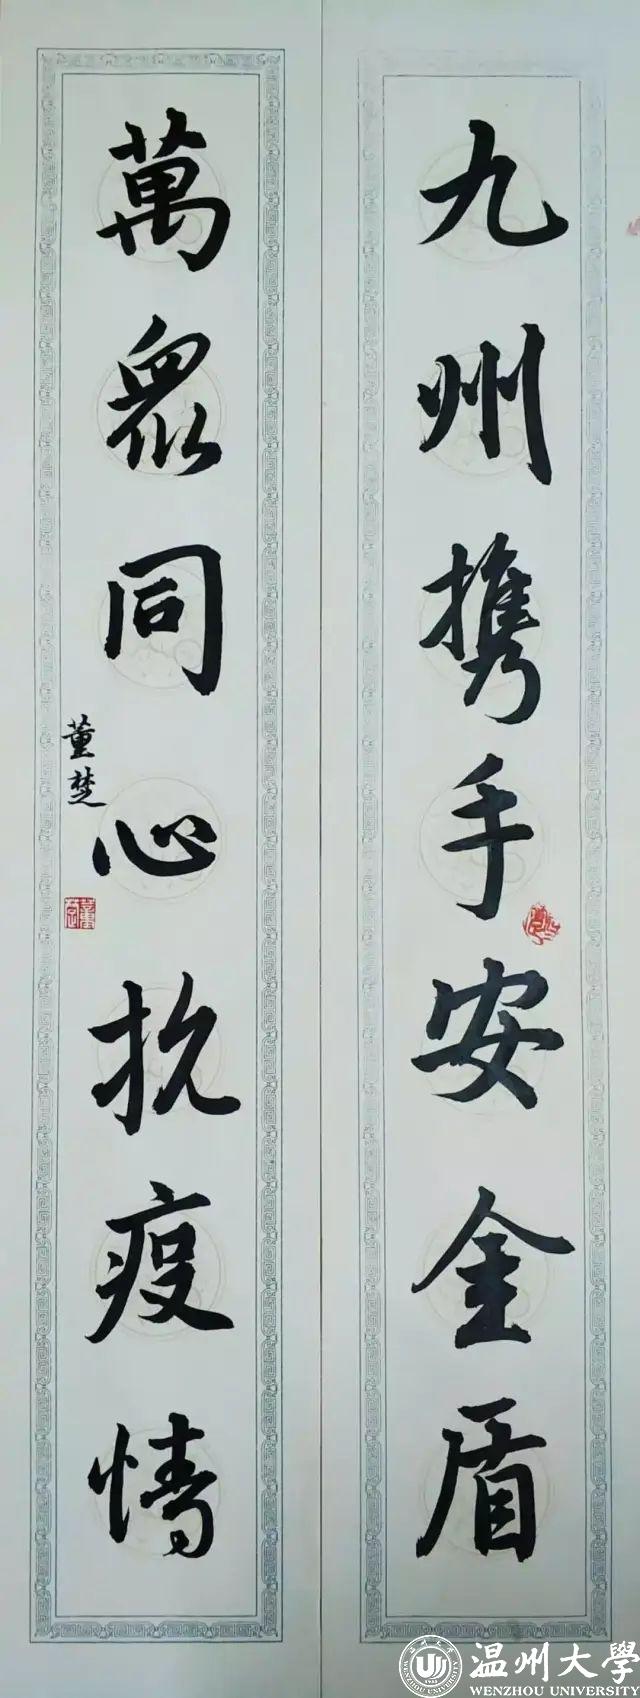 九州携手安金盾
萬眾同心抗疫情
董楚
温州大學
WENZHOU UNIVERSITY